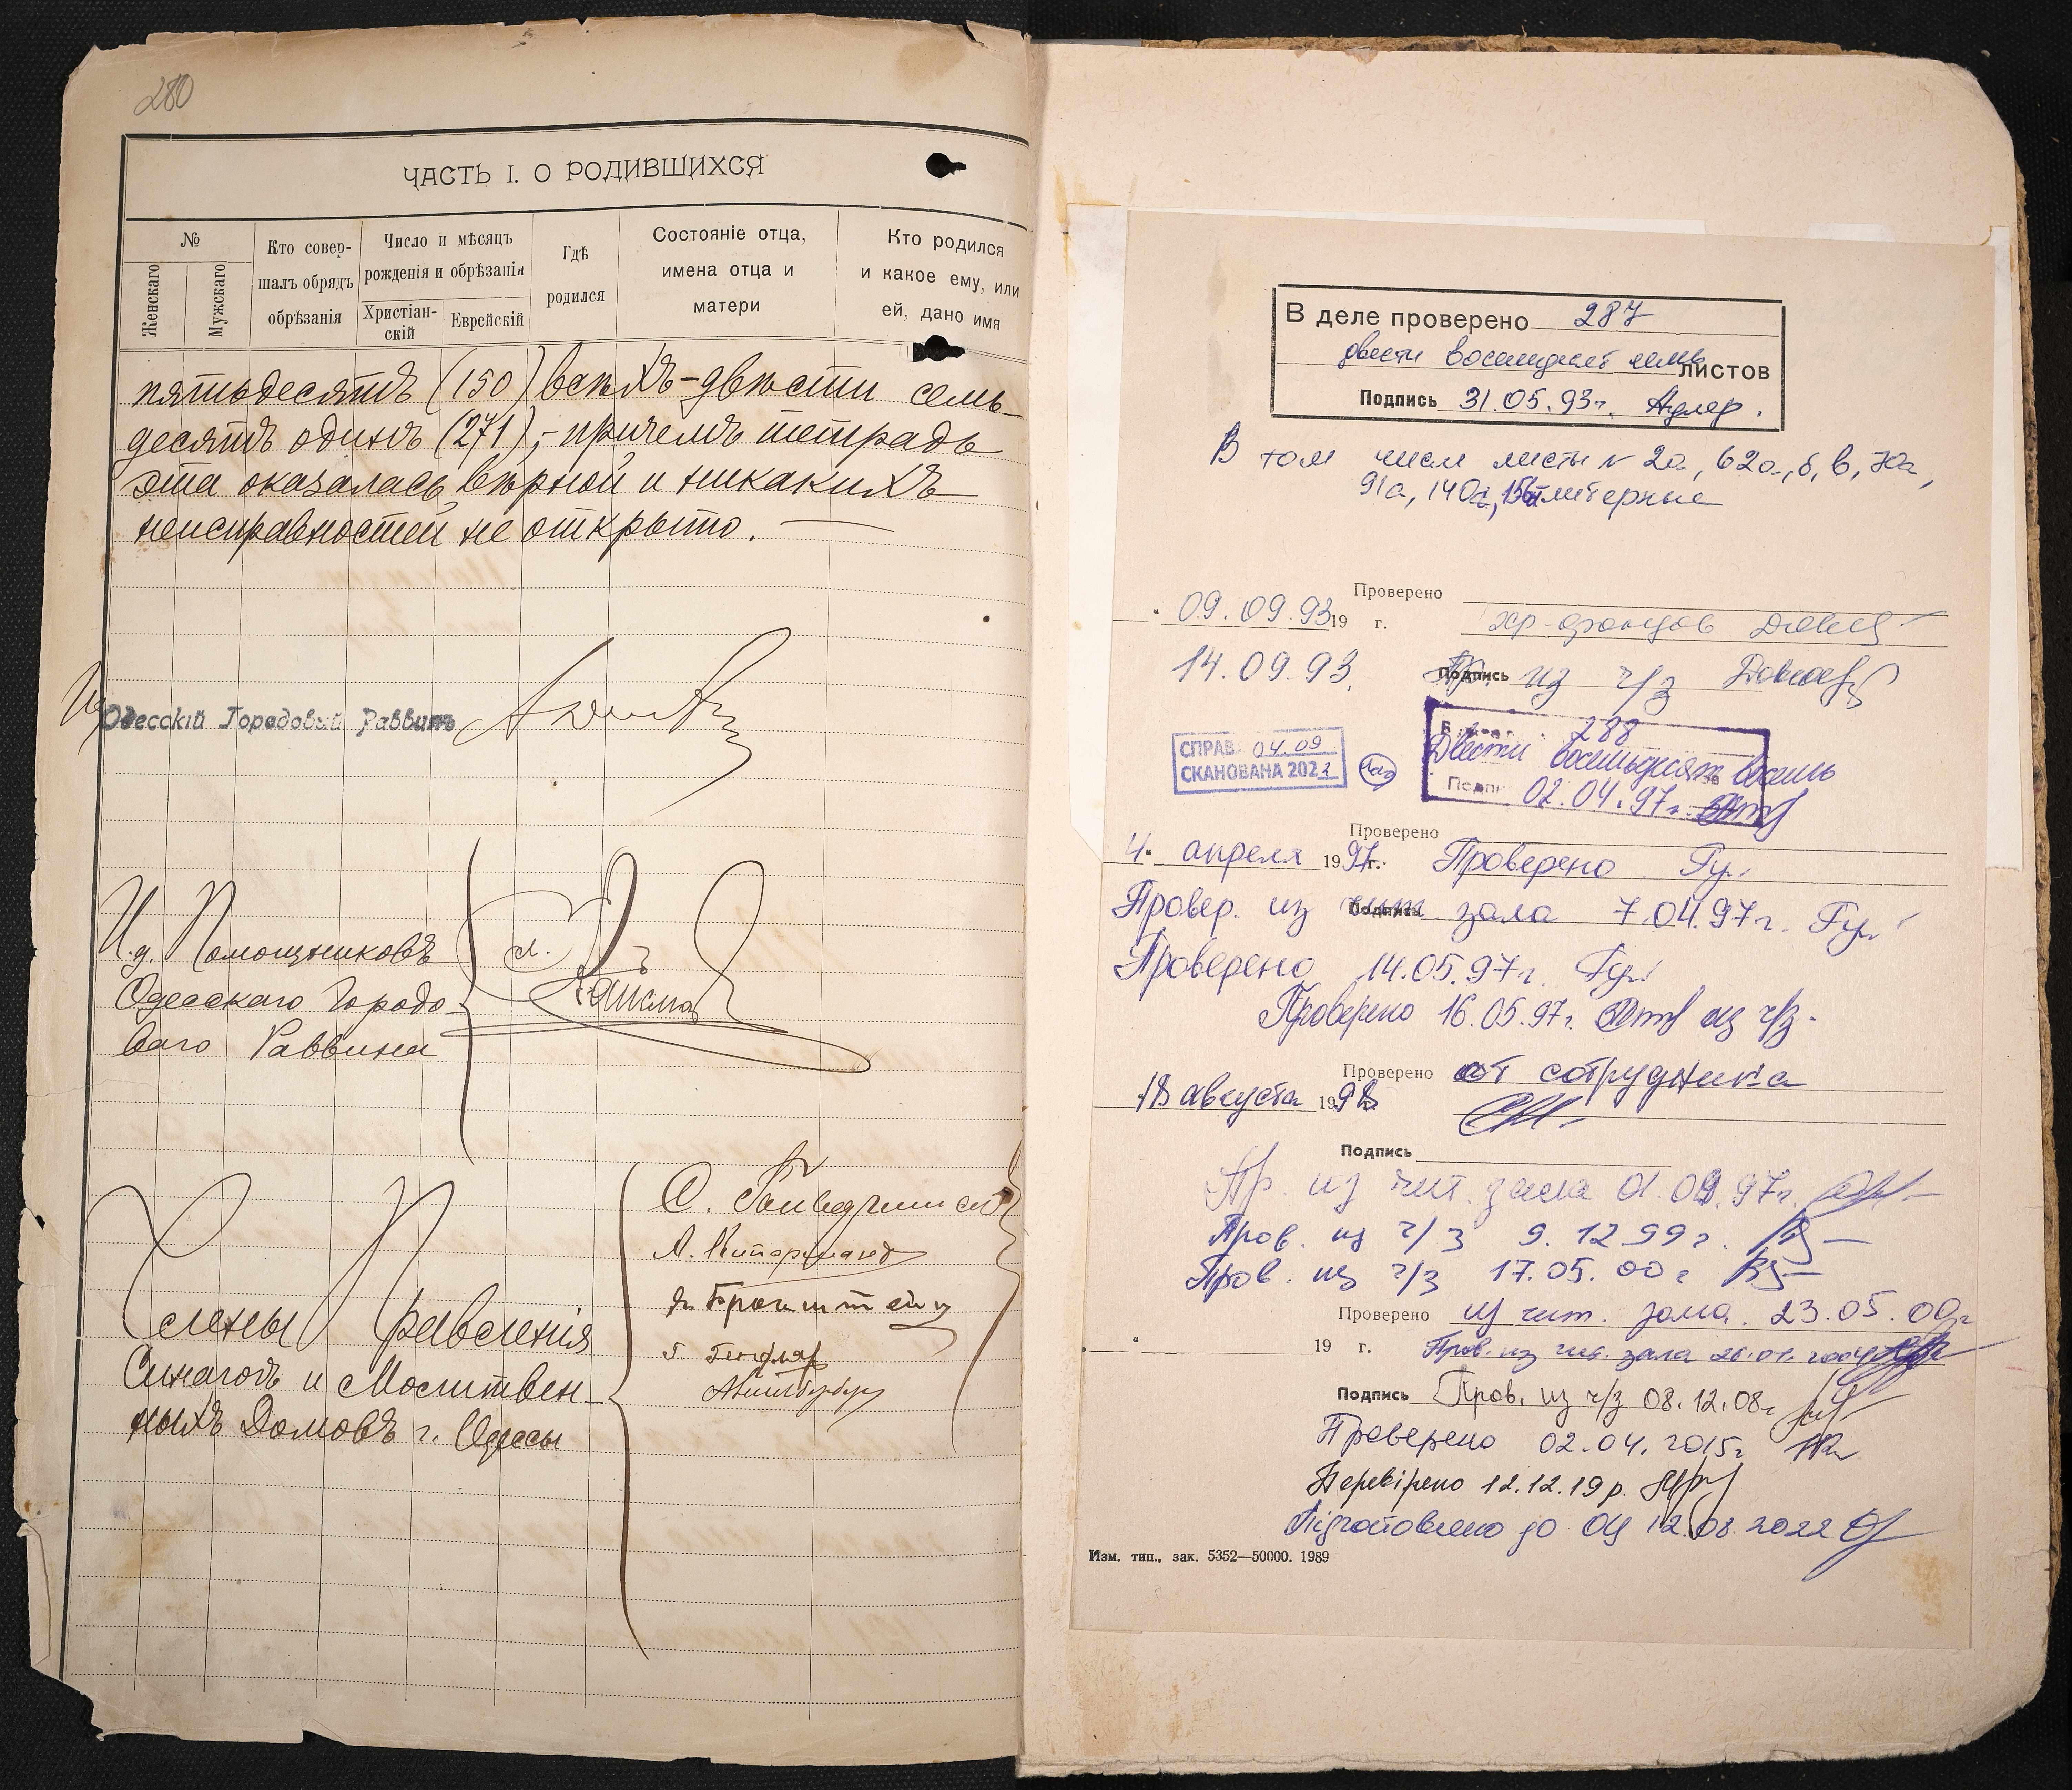 280
ЧАСТЬ I. О РОДИВШИХСЯ
№
Женскаго
Мужскаго
Кто совер-
шалъ обрядъ
обрѣзанія
Число и мѣсяцъ
рожденія и обрѣзанія
Христіан-
скій
Еврейскій
Гдѣ
родился
Состояніе отца,
имена отца и
матери
Кто родился
и какое ему, или
ей, дано имя
пятьдесятъ (150) всѣхъ - двѣсти семь-
десятъ одинъ (271), - причемъ тетрадь
эта оказалась вѣрной и никакихъ
неисправностей не открыто.
Одесскій Городовый Раввинъ
И.д. Помощниковъ
Одесскаго Городо-
ваго Раввина
Члены Правленія
Синагогъ и Молитвен-
ныхъ Домовъ г. Одессы
Бронштейн
В деле проверено 287
двести восемьдесят семь листов
Подпись 31.05.93г. Адлер.
В том числе листы № 2а, 62а, б, в, 70а,
91а, 140а, литерные
Проверено
" 09.09.93 19 г.
14.09.93. Подпись из ч/з
СПРАВ 04.09
СКАНОВАНА 2022
288
Двести восемьдесят восемь
02.04.97г.
Проверено
4 " апреля 1997г. Проверено Гу.
Провер. из чит. зала 7.04.97г. Гу.
Подпись
Проверено 14.05.97г. Гу.
Проверено 16.05.97г. из ч/з.
Проверено от сотрудника
18 августа 1998
Подпись
Пр. из чит. зала 97г.
Пров. из ч/з 9.12.99г.
Пров. из ч/з 17.05.00г
Проверено из чит. зала. 23.05.00г
" 19 г. Пров. из чит. зала
Подпись Пров. из ч/з 08.12.08г
Проверено 02.04.2015г
Перевірено 12.12.19р.
Підготовлено до ОЦ 12.08.2022
Изм. тип., зак. 5352—50000. 1989